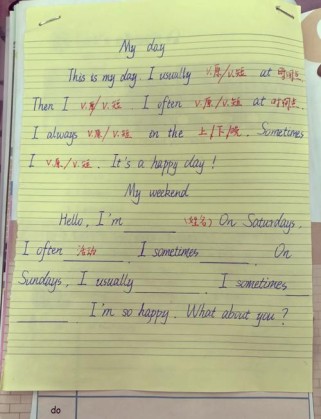 My day
This is my day. I usually v.原/v.短 at 时间点.
Then I v.原/v.短. I often v.原/v.短 at 时间点.
I always v.原/v.短 in the 上/下/晚. Sometimes
I v.原/v.短. It's a happy day!
My weekend
Hello, I'm ______ (姓名) On Saturdays,
I often 活动. I sometimes ______. On
Sundays, I usually ______. I sometimes ___
______. I'm so happy. What about you?
do